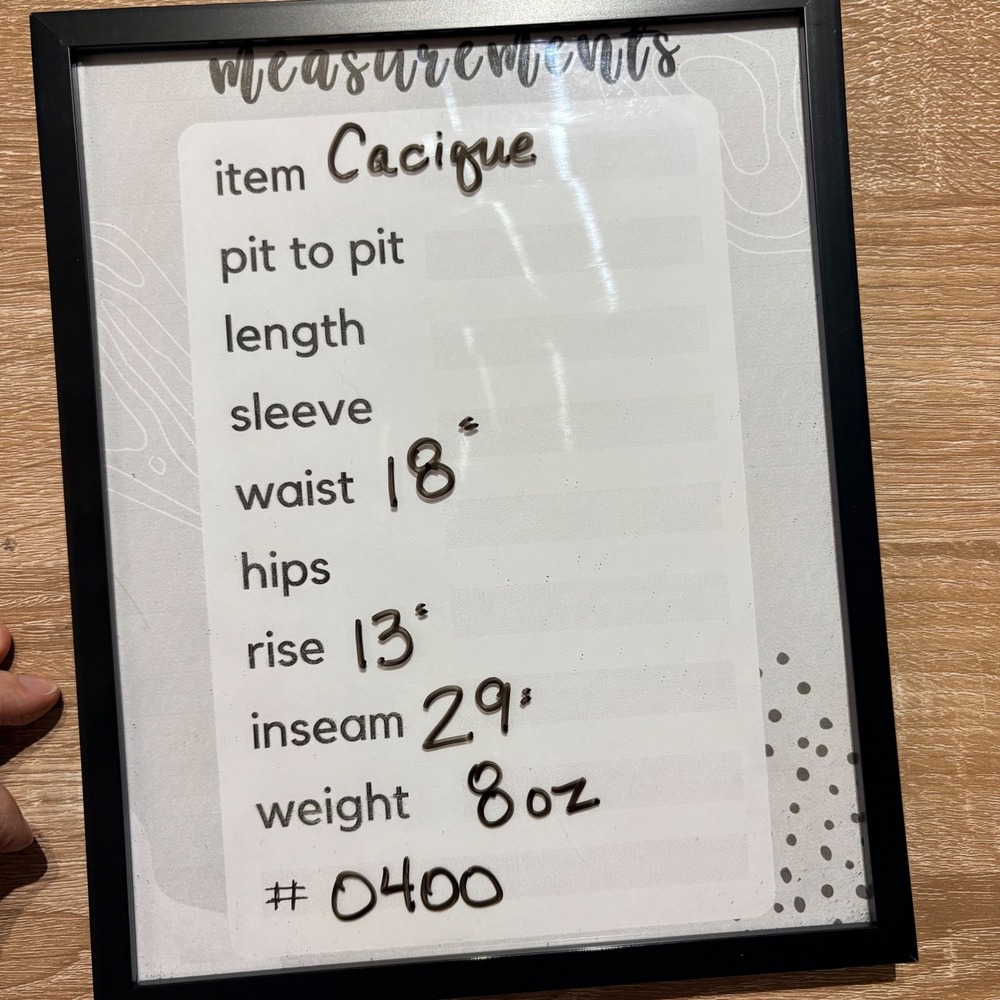 measurements
item Cacique
pit to pit
length
sleeve
waist 18"
hips
rise 13"
inseam 29"
weight 8oz
# 0400